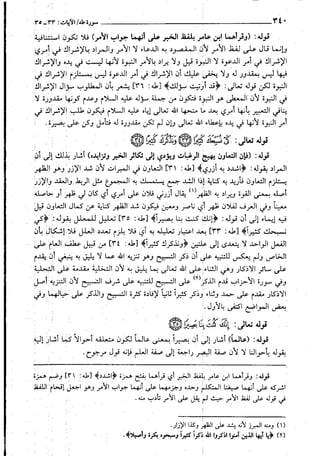 ٣٤٠
سورة طه/ الآيات: ٣٣ ـ ٣٥
قوله: (وقرأهما ابن عامر بلفظ الخبر على أنهما جواب الأمر) فلا تكون استئنافية
وإنما قال على لفظ الأمر لأن المقصود به الدعاء لا الأمر والمراد بالإشراك في أمري
الإشراك في أمر الدعوة لا النبوة قيل ولا يراد بالأمر النبوة لأنها ليست في يده والإشراك
فيها ليس بمقدور له ولا يخفى عليك أن الإشراك في أمر الدعوة ليس يستلزم الإشراك في
النبوة لكن قوله تعالى: ﴿قد أوتيت سؤلك﴾ [طه: ٣٦] يشعر بأن المطلوب سؤال الإشراك
في النبوة لأن المعطى هو النبوة فتكون من جملة سؤله عليه السلام وعدم كونها مقدورة لا
ينافي التعبير بأنها أمري بعد ما منحها الله تعالى إياه عليه السلام فيكون طلب الإشراك في
أمر النبوة لأنها في يده بإعطاء الله تعالى وإن لم تكن مقدورة له فتأمل وكن على بصيرة.
قوله تعالى: كَيْ نُسَبِّحَكَ كَثِيرًا وَنَذْكُرَكَ كَثِيرًا
قوله: (فإن التعاون يهيج الرغبات ويؤدي إلى تكاثر الخير وتزايده) أشار بذلك إلى أن
المراد بقوله: ﴿اشدد به أزري﴾ [طه: ٣١] التعاون في العبادات لأن شد الأزر وهو الظهر
يستلزم التعاون فأريد به كناية إذا الشد جمع يستمسك به المجموع مثل الربط والعقد والإزار
أصله بمعنى القوة ويراد به الظهر(١) يقال أزرني فلان على أمري أي كان لي ظهر أو حاصله
معيناً وفي العرف لفلان ظهر أي ناصر ومعين فيكون شد الظهر كناية عن كمال التعاون قيل
فيه إيماء إلى أن قوله: ﴿إنك كنت بنا بصيراً﴾ [طه: ٣٥] تعليل للمعلل بقوله: ﴿كي
نسبحك كثيراً﴾ [طه: ٣٣] بعد اعتبار تعليله به أي فلا يلزم تعدد العلل فلا إشكال بأن
الفعل الواحد لا يتعدى إلى علتين ﴿ونذكرك كثيراً﴾ [طه: ٣٤] من قبيل عطف العام على
الخاص ولم يعكس للتنبيه على أن ذكر التسبيح وهو تنزيه الله عما لا يليق به ينبغي أن يقدم
على سائر الأذكار وهي الثناء على الله تعالى بما يليق به لأن التخلية مقدمة على التحلية
وفي سورة الأحزاب قدم الذكر(٢) على التسبيح للتنبيه على شرف التسبيح لأن التنزيه أصل
الأذكار مقدم على حمد وثناء وذكر كثيراً ثانياً لإفادة كثرة التسبيح والذكر على حيالهما وفي
بعض المواضع اكتفى بالأول.
قوله تعالى: إِنَّكَ كُنْتَ بِنَا بَصِيرًا
قوله: (عالماً) أشار إلى أن بصيراً بمعنى عالماً لكون متعلقه أحوالاً كما أشار إليه
بقوله بأحوالنا لا لأن صفة البصر راجعة إلى صفة العلم فإنه قول مرجوح.
قوله: وقرأهما ابن عامر بلفظ الخبر أي قرأهما بفتح همزة ﴿اشدد﴾ [طه: ٣١] وضم همزة
اشركه على أنهما صيغتا المتكلم وحده وجزمهما على أنهما جواب الأمر وهو اجعل إقحام اللفظ
في قوله على لفظ الأمر حيث لم يقل على الأمر تأدب منه.
(١) ومنه المبرز لأنه يشد على الظهر وكذا الإزار.
(٢) ﴿يا أيها الذين آمنوا اذكروا الله ذكراً كثيراً وسبحوه بكرة وأصيلاً﴾.